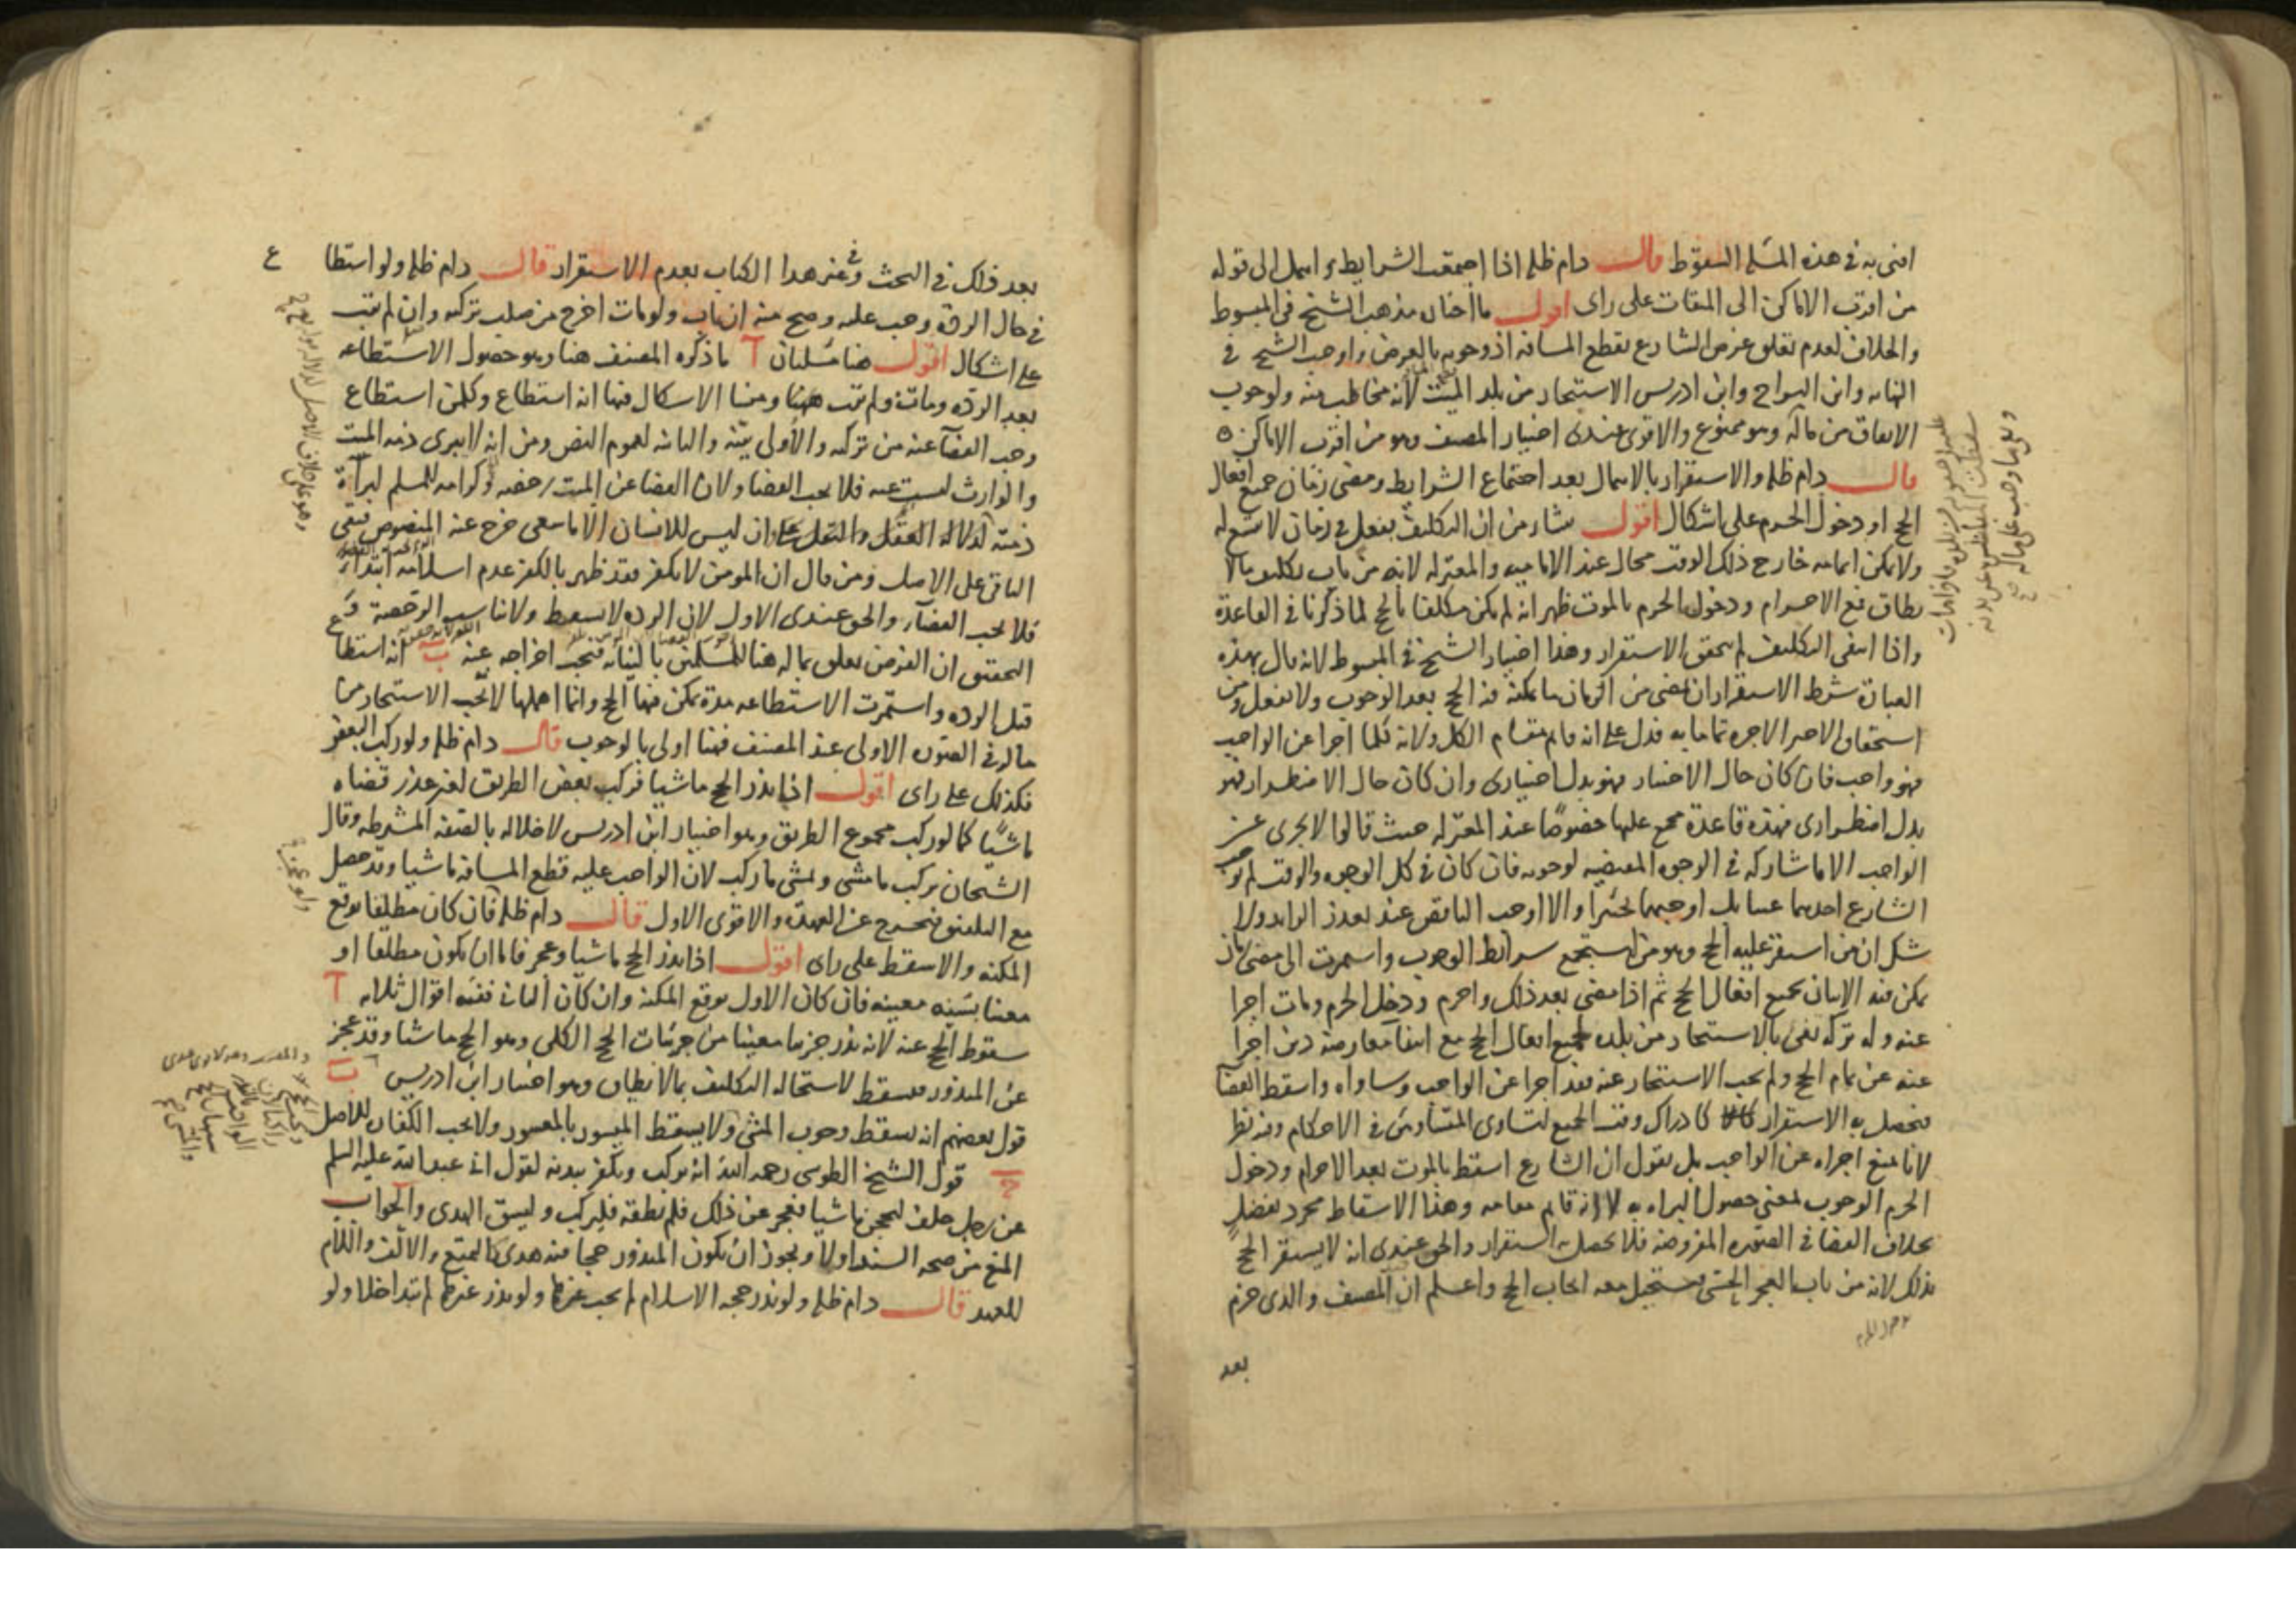 افتى به في هذه المسئلة السقوط قال دام ظله اذا اجتمعت الشرايط واهمل الى قوله
من اقرب الاماكن الى الميقات على راى اقول ما اختاره مذهب الشيخ في المبسوط
والخلاف لعدم تعلق غرض الشارع بقطع المسافة اذ وجوبه بالعرض واوجب الشيخ في
النهايه وابن البراج وابن ادريس الاستيجار من بلد الميت لانه مخاطب منه ولوجوب
الانفاق من ماله وهو ممنوع والاقوى عندى اختيار المصنف وهو من اقرب الاماكن
قال دام ظله والاستقرار بالاهمال بعد اجتماع الشرايط ومضى زمان جميع افعال
الحج او دخول الحرم على اشكال اقول منشاؤه من ان التكليف بفعل في زمان لا يتسع له
ولا يمكن اتمامه خارج ذلك الوقت محال عند الاماميه والمعتزله لانه من باب تكليف ما لا
يطاق فمع الاحرام ودخول الحرم بالموت ظهر انه لم يكن مكلفا بالحج لما ذكرنا في القاعدة
واذا انتفى التكليف لم يتحقق الاستقرار وهذا اختيار الشيخ في المبسوط لانه قال بهذه
العبارة شرط الاستقرار ان يمضى من الزمان ما يمكنه فيه الحج بعد الوجوب ولا يفعل ومن
استحقاق الاجير الاجرة تماما به فدل على انه قايم مقام الكل ولانه كلما اجزا عن الواجب
فهو واجب فان كان حال الاختيار فهو بدل اختيارى وان كان حال الاضطرار فهو
بدل اضطرارى فهذه قاعدة مجمع عليها خصوصا عند المعتزله حيث قالوا لا يجزى عن
الواجب الا ما شاركه في الوجوه المقتضيه لوجوبه فان كان في كل الوجوه والوقت لم يوجب
الشارع احدهما عينا بل اوجبهما تخييرا والا اوجب الناقص عند تعذر الزايد ولا
شك ان من استقر عليه الحج وهو من استجمع شرائط الوجوب واستمرت الى مضى زمان
يمكن فيه الاتيان بجميع افعال الحج ثم اذا مضى بعد ذلك واحرم ودخل الحرم ومات اجزا
عنه وله تركه تفى بالاستيجار من بلده لجميع افعال الحج مع انتفا معارضة دين اجزا
عنه عن تمام الحج ولم يجب الاستيجار عنه فقد اجزا عن الواجب وساواه واسقط القضا
فيحصل به الاستقرار كادراك وقت الجميع لتساوى المتساويين في الاحكام وفيه نظر
لانا نمنع اجزاه عن الواجب بل نقول ان الشارع اسقط بالموت بعد الاحرام ودخول
الحرم الوجوب لمعنى حصول البراه به لا انه قايم مقامه وهذا الاسقاط مجرد تفضل
بخلاف القضا في الصوره المفروضه فلا يحصل به استقرار والحق عندى انه لا يستقر الحج
بذلك لانه من باب العجز الحسى فيستحيل معه ايجاب الحج واعلم ان المصنف والدى جزم
بعد
بعد ذلك في البحث وفي غير هذا الكتاب بعدم الاستقرار قال دام ظله ولو استطاع
في حال الردة وجب عليه وصح منه ان تاب ولو مات اخرج من صلب تركته وان لم يتب
على اشكال اقول هنا مسئلتان آ ما ذكره المصنف هنا وهو حصول الاستطاعه
بعد الرده ومات ولم يتب ههنا ومنشا الاشكال فيها انه استطاع وكل من استطاع
وجب القضآ عنه من تركته والاولى بيّنة والثانيه لعموم النص ومن انه لا يبرى ذمه الميت
والوارث ليست عنه فلا يجب القضا ولان القضا عن الميت رخصه وكرامه للمسلم لبرآءة
ذمته لدلالة العقل والنقل على ان ليس للانسان الا ما سعى خرج عنه المنصوص فبقى
الباقى على الاصل ومن قال ان المومن لا يكفر فقد ظهر بالكفر عدم اسلامه ابتداء
فلا يجب القضآء والحق عندى الاول لان الرده لا تسقط ولا تناسب الرخصة ومع
التحقيق ان الفرض تعلق بماله هنا للمسلمين بالنيابه فيجب اخراجه عنه ب انه استطاع
قبل الرده واستمرت الاستطاعه مدة يمكن فيها الحج وانما اهملها لا يجب الاستيجار من
ماله في الصوره الاولى عند المصنف فهنا اولى بالوجوب قال دام ظله ولو ركب البعض
فكذلك على راى اقول اذا نذر الحج ماشيا فركب بعض الطريق لغير عذر قضاه
ماشيًا كما لو ركب مجموع الطريق وهو اختيار ابن ادريس لاخلاله بالصفه المشترطه وقال
الشيخان يركب ما مشى ويمشى ما ركب لان الواجب عليه قطع المسافه ماشيا وقد حصل
مع التلفيق فيخرج عن العهدة والاقوى الاول قال دام ظله فان كان مطلقا توقع
المكنه والا سقط على راى اقول اذا نذر الحج ماشيا وعجز فاما ان يكون مطلقا او
معينا بسنه معينه فان كان الاول توقع المكنة وان كان الثانى ففيه اقوال ثلاثه آ
سقوط الحج عنه لانه نذر جزئيا معينا من جزئيات الحج الكلى وهو الحج ماشيا وقد عجز
عن المنذور فيسقط لاستحاله التكليف بما لا يطاق وهو اختيار ابن ادريس ب
قول بعضهم انه يسقط وجوب المشى ولا يسقط الميسور بالمعسور ولا يجب الكفاره للاصل
ج قول الشيخ الطوسى رحمه الله انه يركب ويكفر ببدنه لقول ابى عبد الله عليه السلم
عن رجل حلف ليحجن ماشيا فعجز عن ذلك فلم يطقه فليركب وليسق الهدى والجواب
المنع من صحة السند اولا ويجوز ان يكون المنذور حجا فيه هدى كالتمتع والالف واللام
للعهد قال دام ظله ولو نذر حجه الاسلام لم يجب غيرها ولو نذر غيرها لم تتداخلا ولو